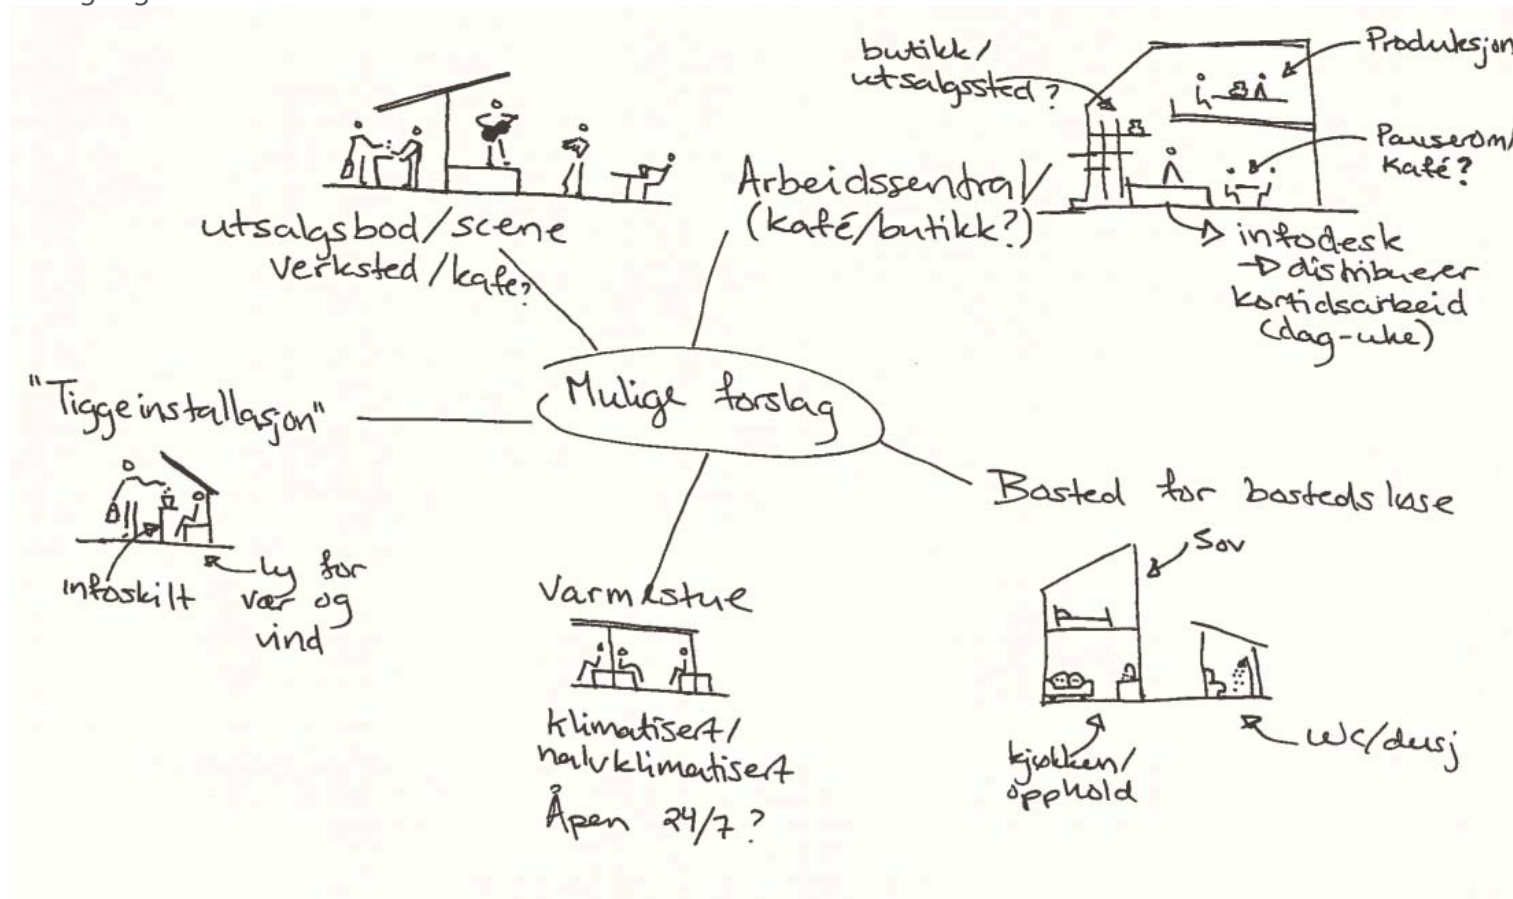 Mulige forslag
utsalgsbod/scene
verksted/kafe?
Arbeidssentral
(kafé/butikk?)
butikk/
utsalgssted?
Produksjon
Pauserom/
Kafé?
infodesk
distribuerer
kortidsarbeid
(dag-uke)
"Tiggeinstallasjon"
infoskilt
ly for
vær og
vind
Varmestue
klimatisert/
halvklimatisert
Åpen 24/7?
Bosted for bostedsløse
Sov
kjøkken/
opphold
WC/dusj